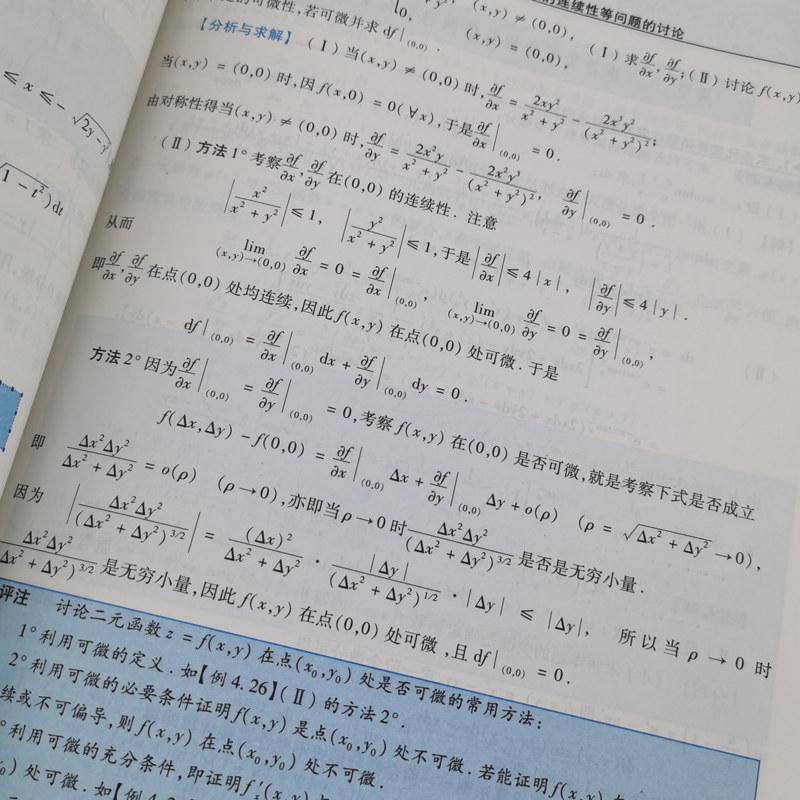 的连续性等问题的讨论
(x,y)≠(0,0), (Ⅰ) 求∂f/∂x, ∂f/∂y; (Ⅱ) 讨论 f(x,y)
0, (x,y)=(0,0),
的可微性,若可微并求 df|(0,0).
【分析与求解】 (Ⅰ) 当(x,y)≠(0,0)时, ∂f/∂x = 2xy²/(x²+y²) - 2x³y²/(x²+y²)²;
当(x,y)=(0,0)时,因 f(x,0)=0(∀x),于是∂f/∂x|(0,0) = 0.
由对称性得当(x,y)≠(0,0)时, ∂f/∂y = 2x²y/(x²+y²) - 2x²y³/(x²+y²)², ∂f/∂y|(0,0) = 0.
(Ⅱ) 方法1° 考察∂f/∂x, ∂f/∂y在(0,0)的连续性. 注意
|x²/(x²+y²)| ≤ 1, |y²/(x²+y²)| ≤ 1,于是|∂f/∂x| ≤ 4|x|, |∂f/∂y| ≤ 4|y|.
从而
lim(x,y)→(0,0) ∂f/∂x = 0 = ∂f/∂x|(0,0), lim(x,y)→(0,0) ∂f/∂y = 0 = ∂f/∂y|(0,0),
即∂f/∂x, ∂f/∂y在点(0,0)处均连续,因此f(x,y)在点(0,0)处可微. 于是
df|(0,0) = ∂f/∂x|(0,0) dx + ∂f/∂y|(0,0) dy = 0.
方法2° 因为∂f/∂x|(0,0) = ∂f/∂y|(0,0) = 0,考察f(x,y)在(0,0)是否可微,就是考察下式是否成立
f(Δx,Δy) - f(0,0) = ∂f/∂x|(0,0) Δx + ∂f/∂y|(0,0) Δy + o(ρ) (ρ = √(Δx²+Δy²) → 0),
即 Δx²Δy²/(Δx²+Δy²) = o(ρ) (ρ→0),亦即当ρ→0时 Δx²Δy²/(Δx²+Δy²)^(3/2) 是否是无穷小量.
因为 |Δx²Δy²/(Δx²+Δy²)^(3/2)| = (Δx)²/(Δx²+Δy²) · |Δy|/(Δx²+Δy²)^(1/2) · |Δy| ≤ |Δy|, 所以当ρ→0时
Δx²Δy²/(Δx²+Δy²)^(3/2) 是无穷小量,因此f(x,y)在点(0,0)处可微,且df|(0,0) = 0.
评注 讨论二元函数z=f(x,y)在点(x₀,y₀)处是否可微的常用方法:
1° 利用可微的定义. 如【例4.26】(Ⅱ)的方法2°.
2° 利用可微的必要条件证明f(x,y)是点(x₀,y₀)处不可微. 若能证明f(x,y)
续或不可偏导,则f(x,y)在点(x₀,y₀)处不可微.
利用可微的充分条件,即证明
处可微. 如【例4.2
≤ x ≤ -√(2y-y²)
1-t²)dt